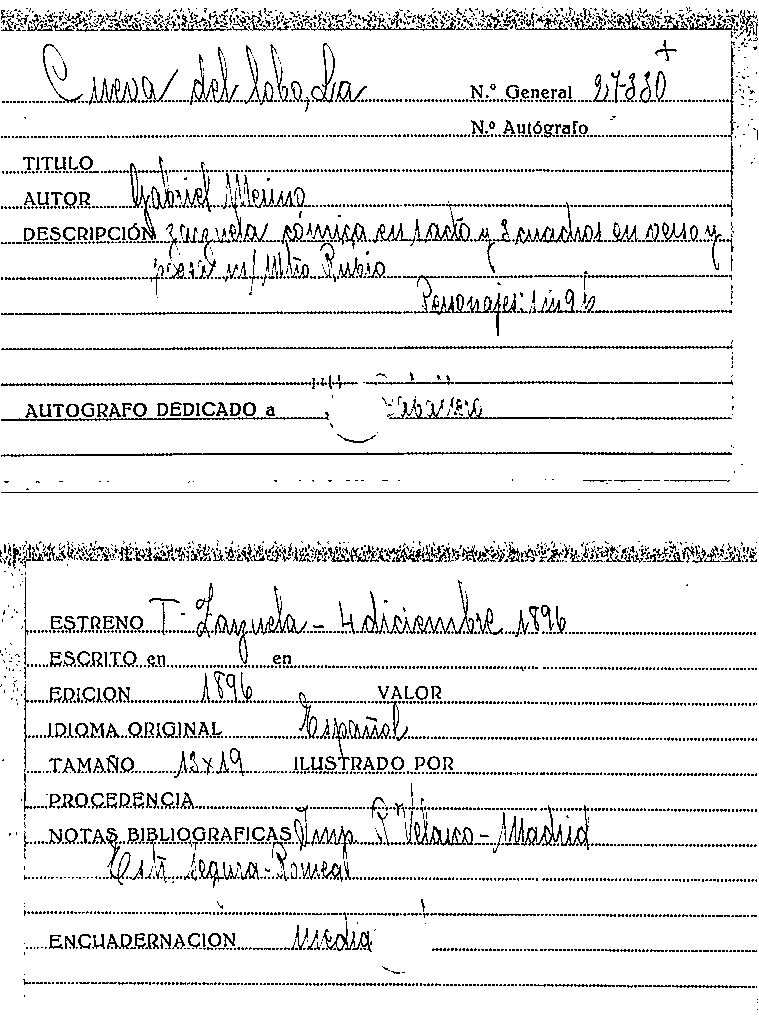 Cueva del lobo, La N.º General 27-330 +
N.º Autógrafo
TITULO
AUTOR Gabriel Merino
DESCRIPCIÓN zarzuela cómica en 1 acto y 3 cuadros en verso y
prosa m/ Mtro Rubio
Personajes: 1 m 9 h
AUTOGRAFO DEDICADO a
ESTRENO T. Zarzuela - 4 diciembre 1896
ESCRITO en en
EDICION 1896 VALOR
IDIOMA ORIGINAL Español
TAMAÑO 13x19 ILUSTRADO POR
PROCEDENCIA
NOTAS BIBLIOGRAFICAS Imp. Rn Velasco - Madrid
Estr. Segura-Romeal
ENCUADERNACION Media